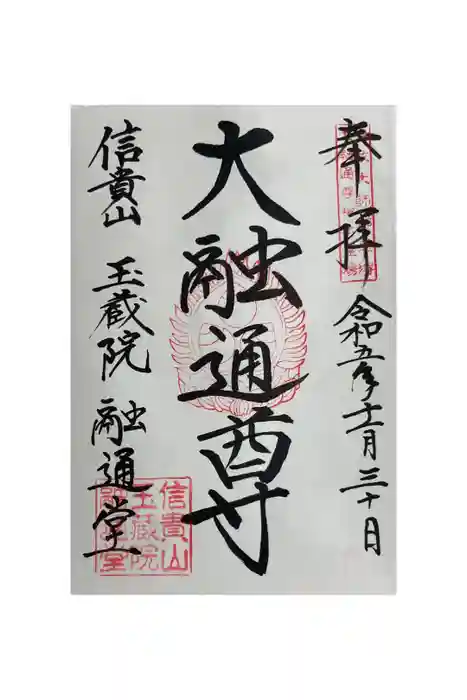 奉拝
令和五年十一月三十日
大融通尊
信貴山 玉蔵院 融通堂
信貴山
玉蔵院
融通堂